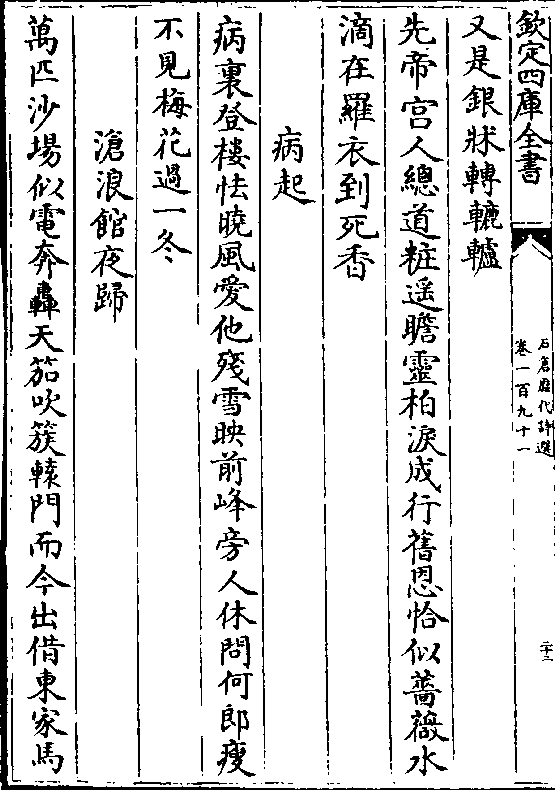 欽定四庫全書
石倉歷代詩選
卷一百九十一
二十二
又是銀牀轉轆轤
先帝宮人總道粧遥瞻靈柏淚成行舊恩恰似薔薇水
滴在羅衣到死香
病起
病裏登樓怯曉風愛他殘雪映前峰旁人休問何郎瘦
不見梅花過一冬
滄浪館夜歸
萬匹沙場似電奔轟天笳吹簇轅門而今出借東家馬